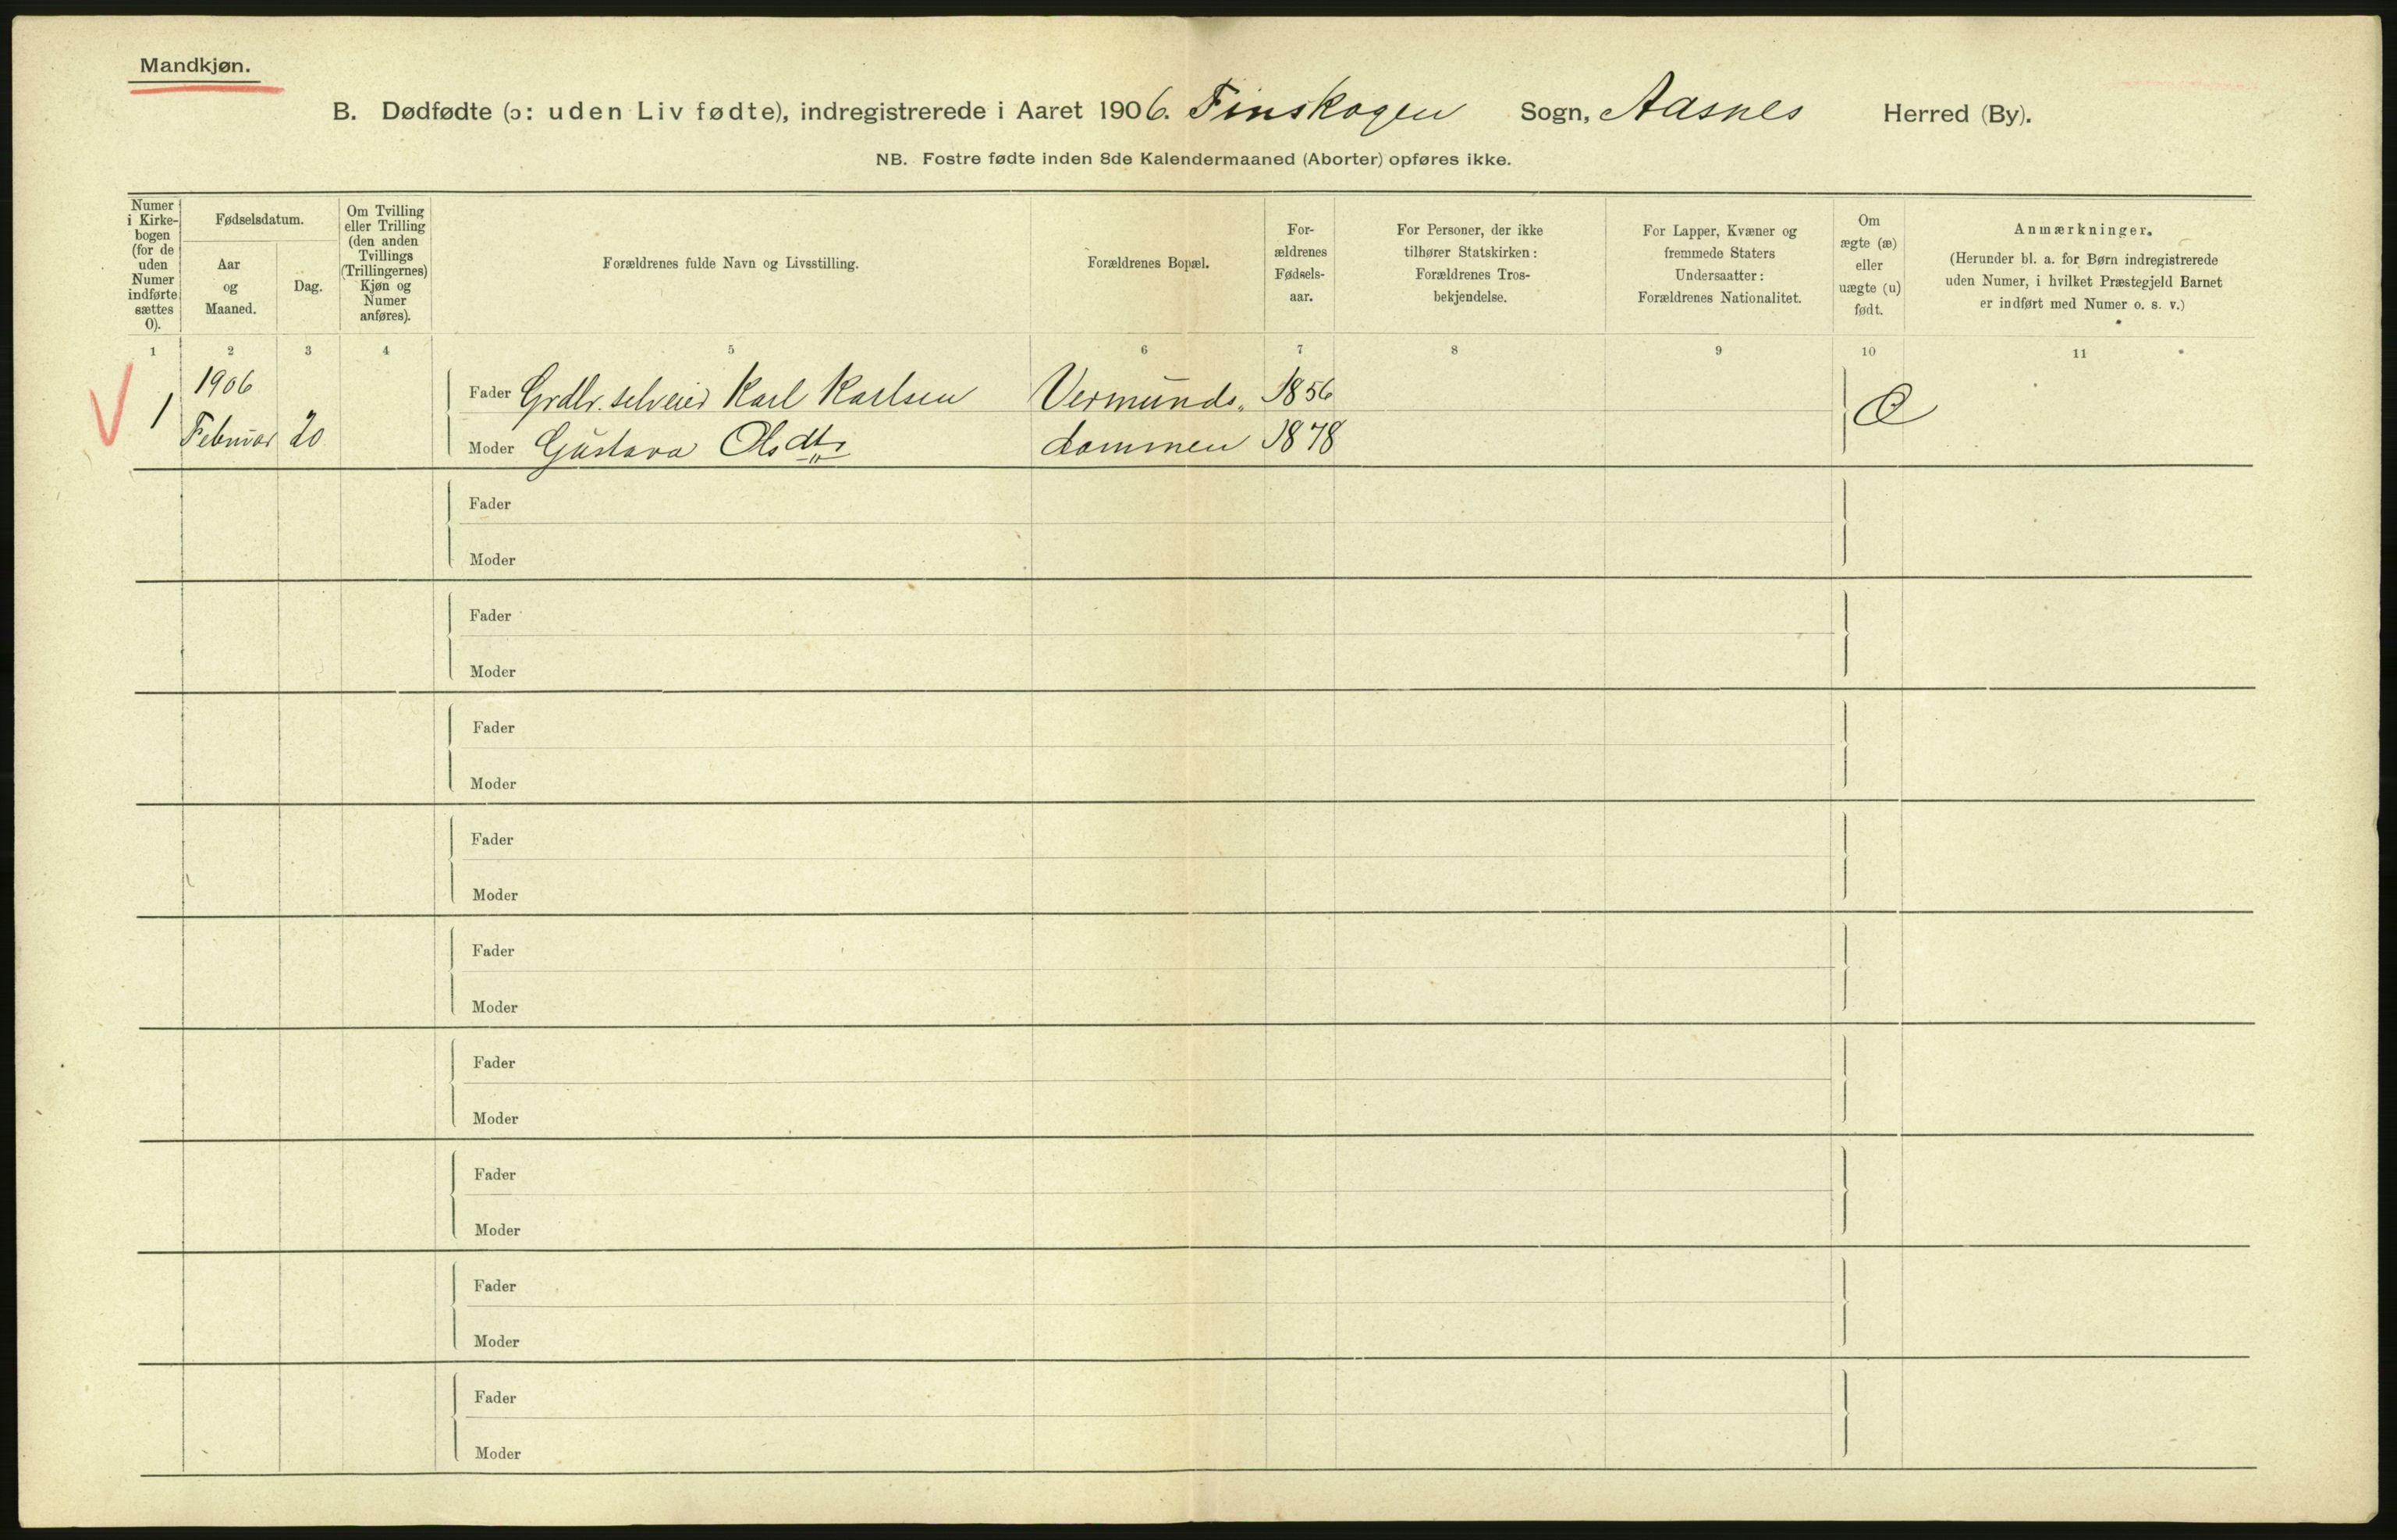 Mandkjøn.
B. Dødfødte (ɔ: uden Liv fødte), indregistrerede i Aaret 1906. Finskogen Sogn, Aasnes Herred (By).
NB. Fostre fødte inden 8de Kalendermaaned (Aborter) opføres ikke.
Numer
i Kirke-
bogen
(for de
uden
Numer
indførte
sættes
0).
Fødselsdatum.
Aar
og
Maaned.
Dag.
Om Tvilling
eller Trilling
(den anden
Tvillings
(Trillingernes)
Kjøn og
Numer
anføres).
Forældrenes fulde Navn og Livsstilling.
Forældrenes Bopæl.
For-
ældrenes
Fødsels-
aar.
For Personer, der ikke
tilhører Statskirken:
Forældrenes Tros-
bekjendelse.
For Lapper, Kvæner og
fremmede Staters
Undersaatter:
Forældrenes Nationalitet.
Om
ægte (æ)
eller
uægte (u)
født.
Anmærkninger.
(Herunder bl. a. for Børn indregistrerede
uden Numer, i hvilket Præstegjeld Barnet
er indført med Numer o. s. v.)
1 2 3 4 5 6 7 8 9 10 11
1906
Fader Grdbr. selveier Karl Karlsen Vermunds- 1856
1 Februar 20 Moder Gustava Olsdtr dammen 1878 Æ
Fader
Moder
Fader
Moder
Fader
Moder
Fader
Moder
Fader
Moder
Fader
Moder
Fader
Moder
Fader
Moder
Fader
Moder